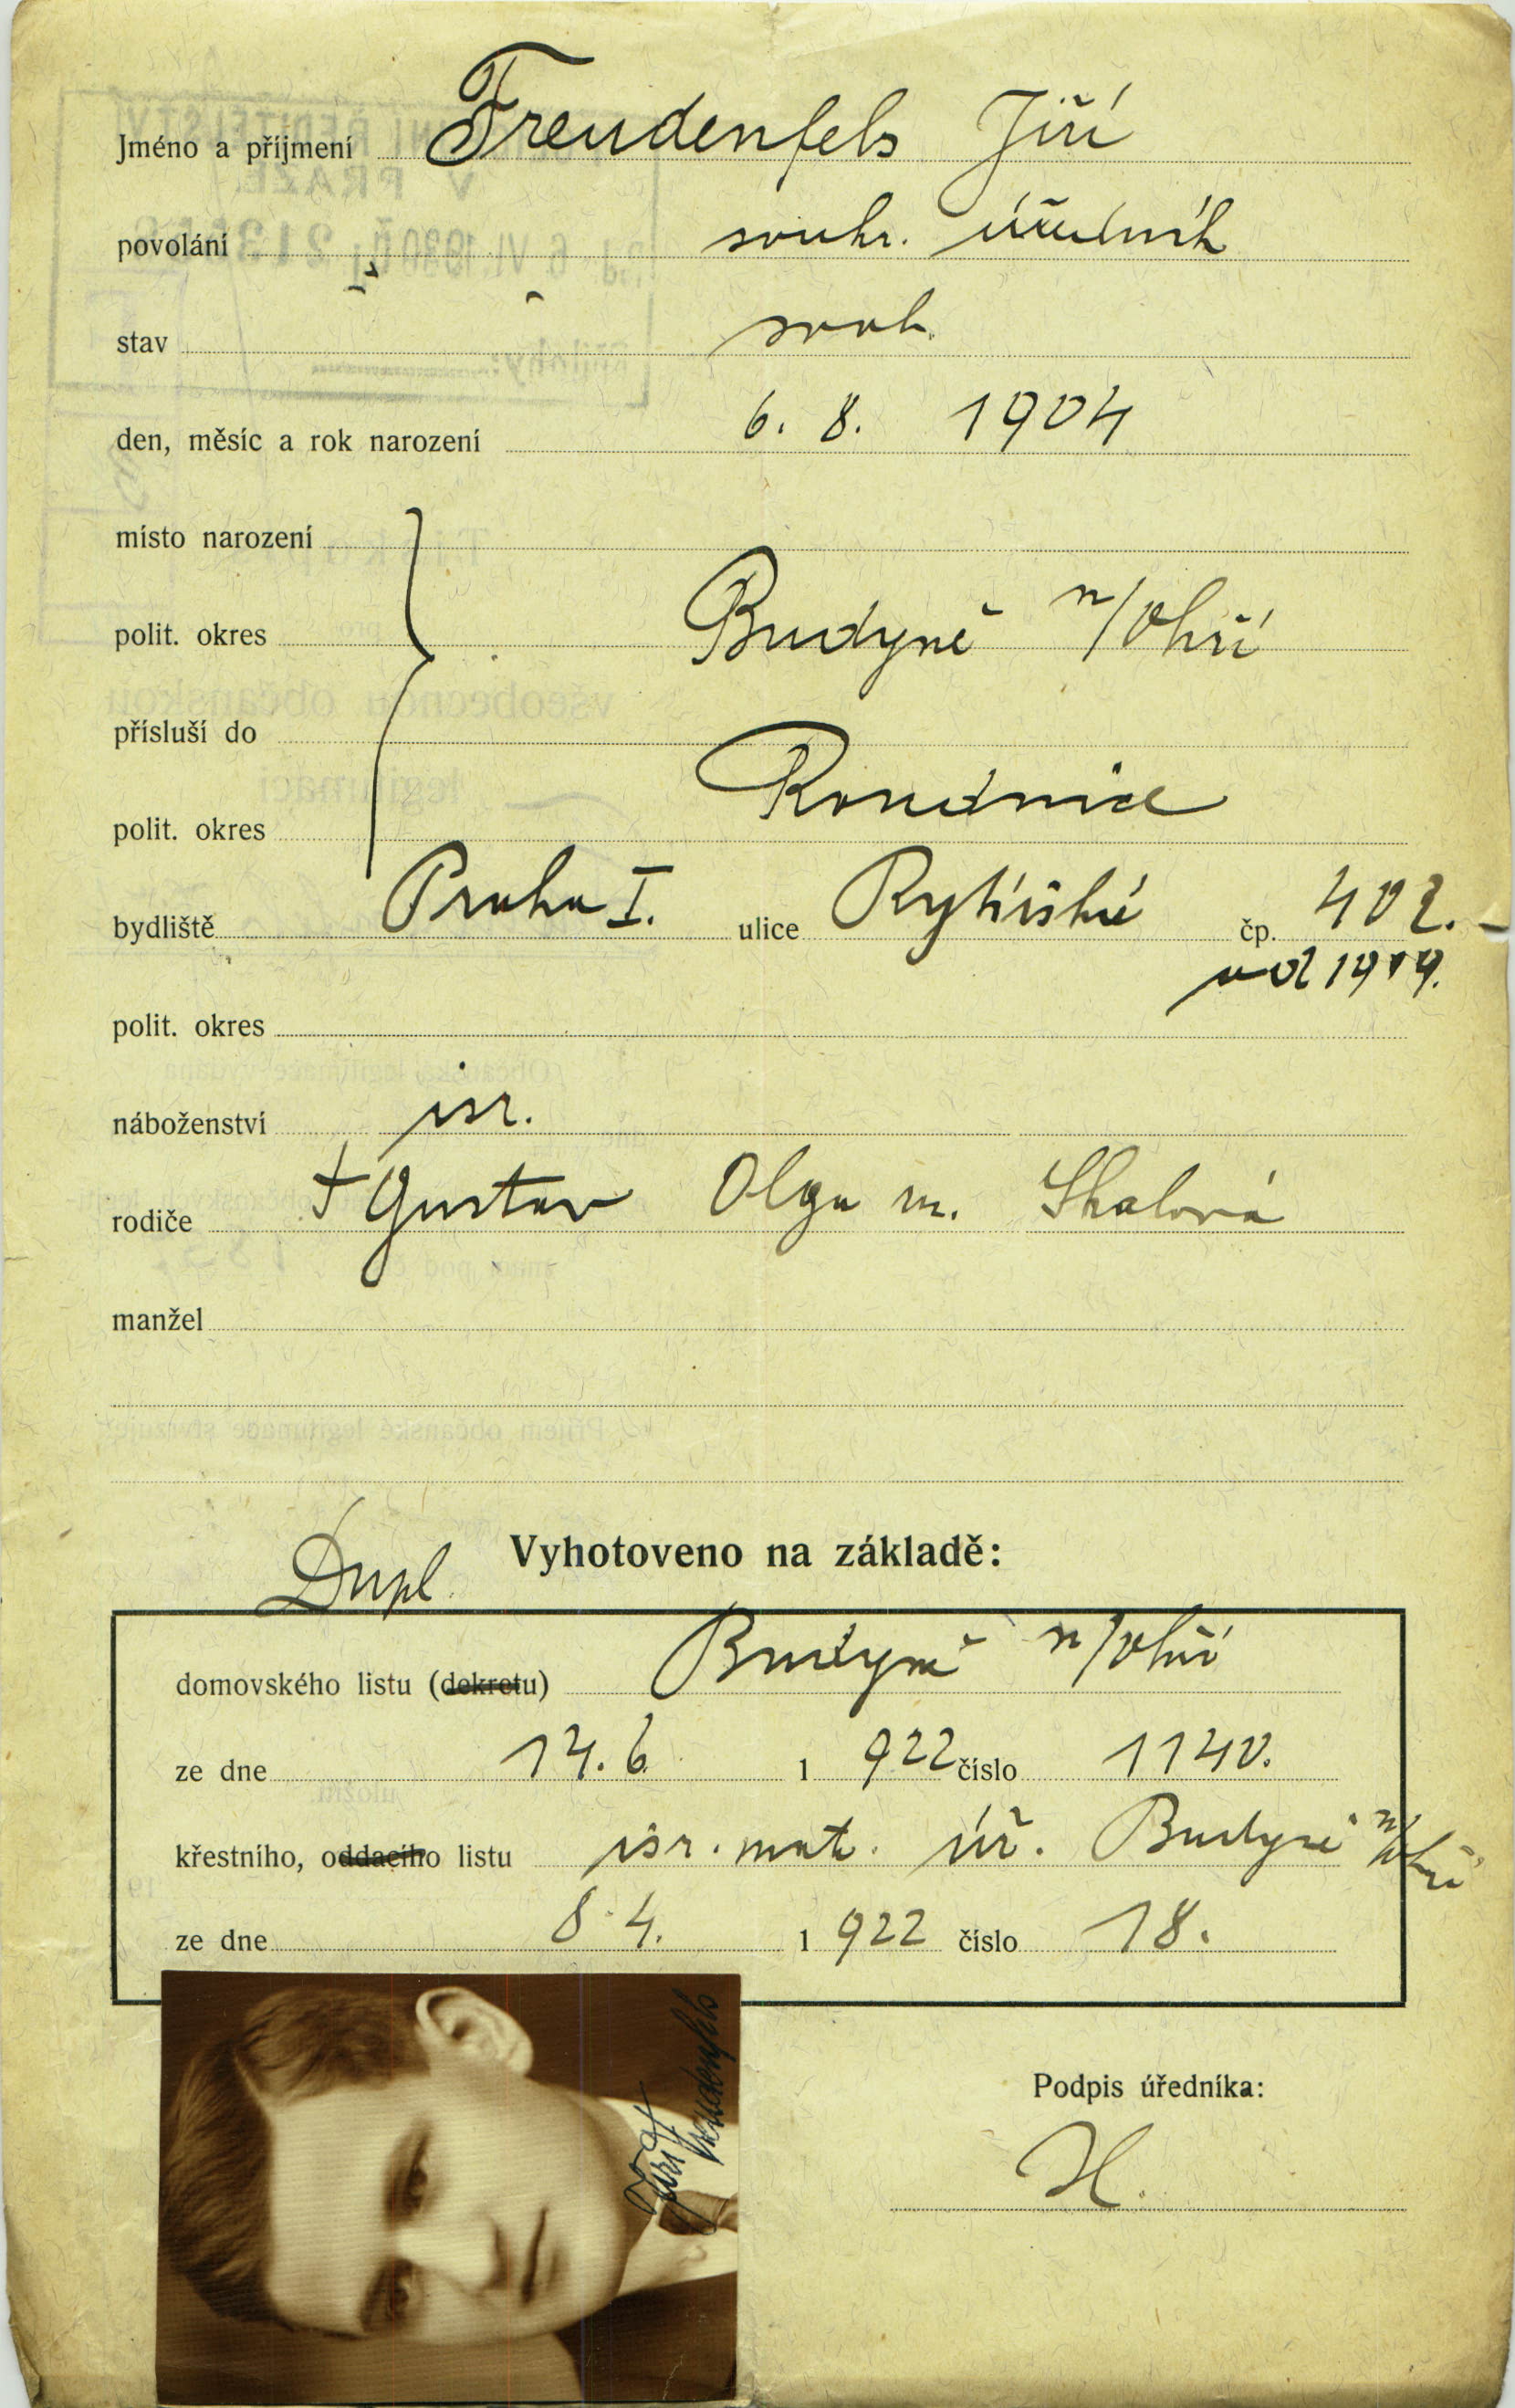 Jméno a příjmení Freudenfels Jiří
povolání soukr. úředník
stav svob.
den, měsíc a rok narození 6. 8. 1904
místo narození
polit. okres Budyně n/Ohří
přísluší do
polit. okres Roudnice
bydliště Praha I. ulice Rytířská čp. 402.
od 1919.
polit. okres
náboženství isr.
rodiče † Gustav Olga r. Skalová
manžel
Dupl. Vyhotoveno na základě:
domovského listu (dekretu) Budyně n/Ohří
ze dne 14. 6. 1 922 číslo 1140.
křestního, oddacího listu isr. mat. úř. Budyně n/Ohří
ze dne 8. 4. 1 922 číslo 18.
Jiří Freudenfels
Podpis úředníka:
H.